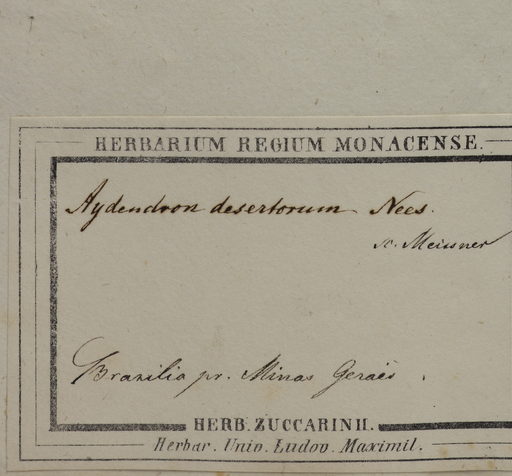 HERBARIUM REGIUM MONACENSE.
Aydendron desertorum Nees.
sc. Meissner
Brasilia pr. Minas Geraës.
HERB. ZUCCARINII.
Herbar. Univ. Ludov. Maximil.